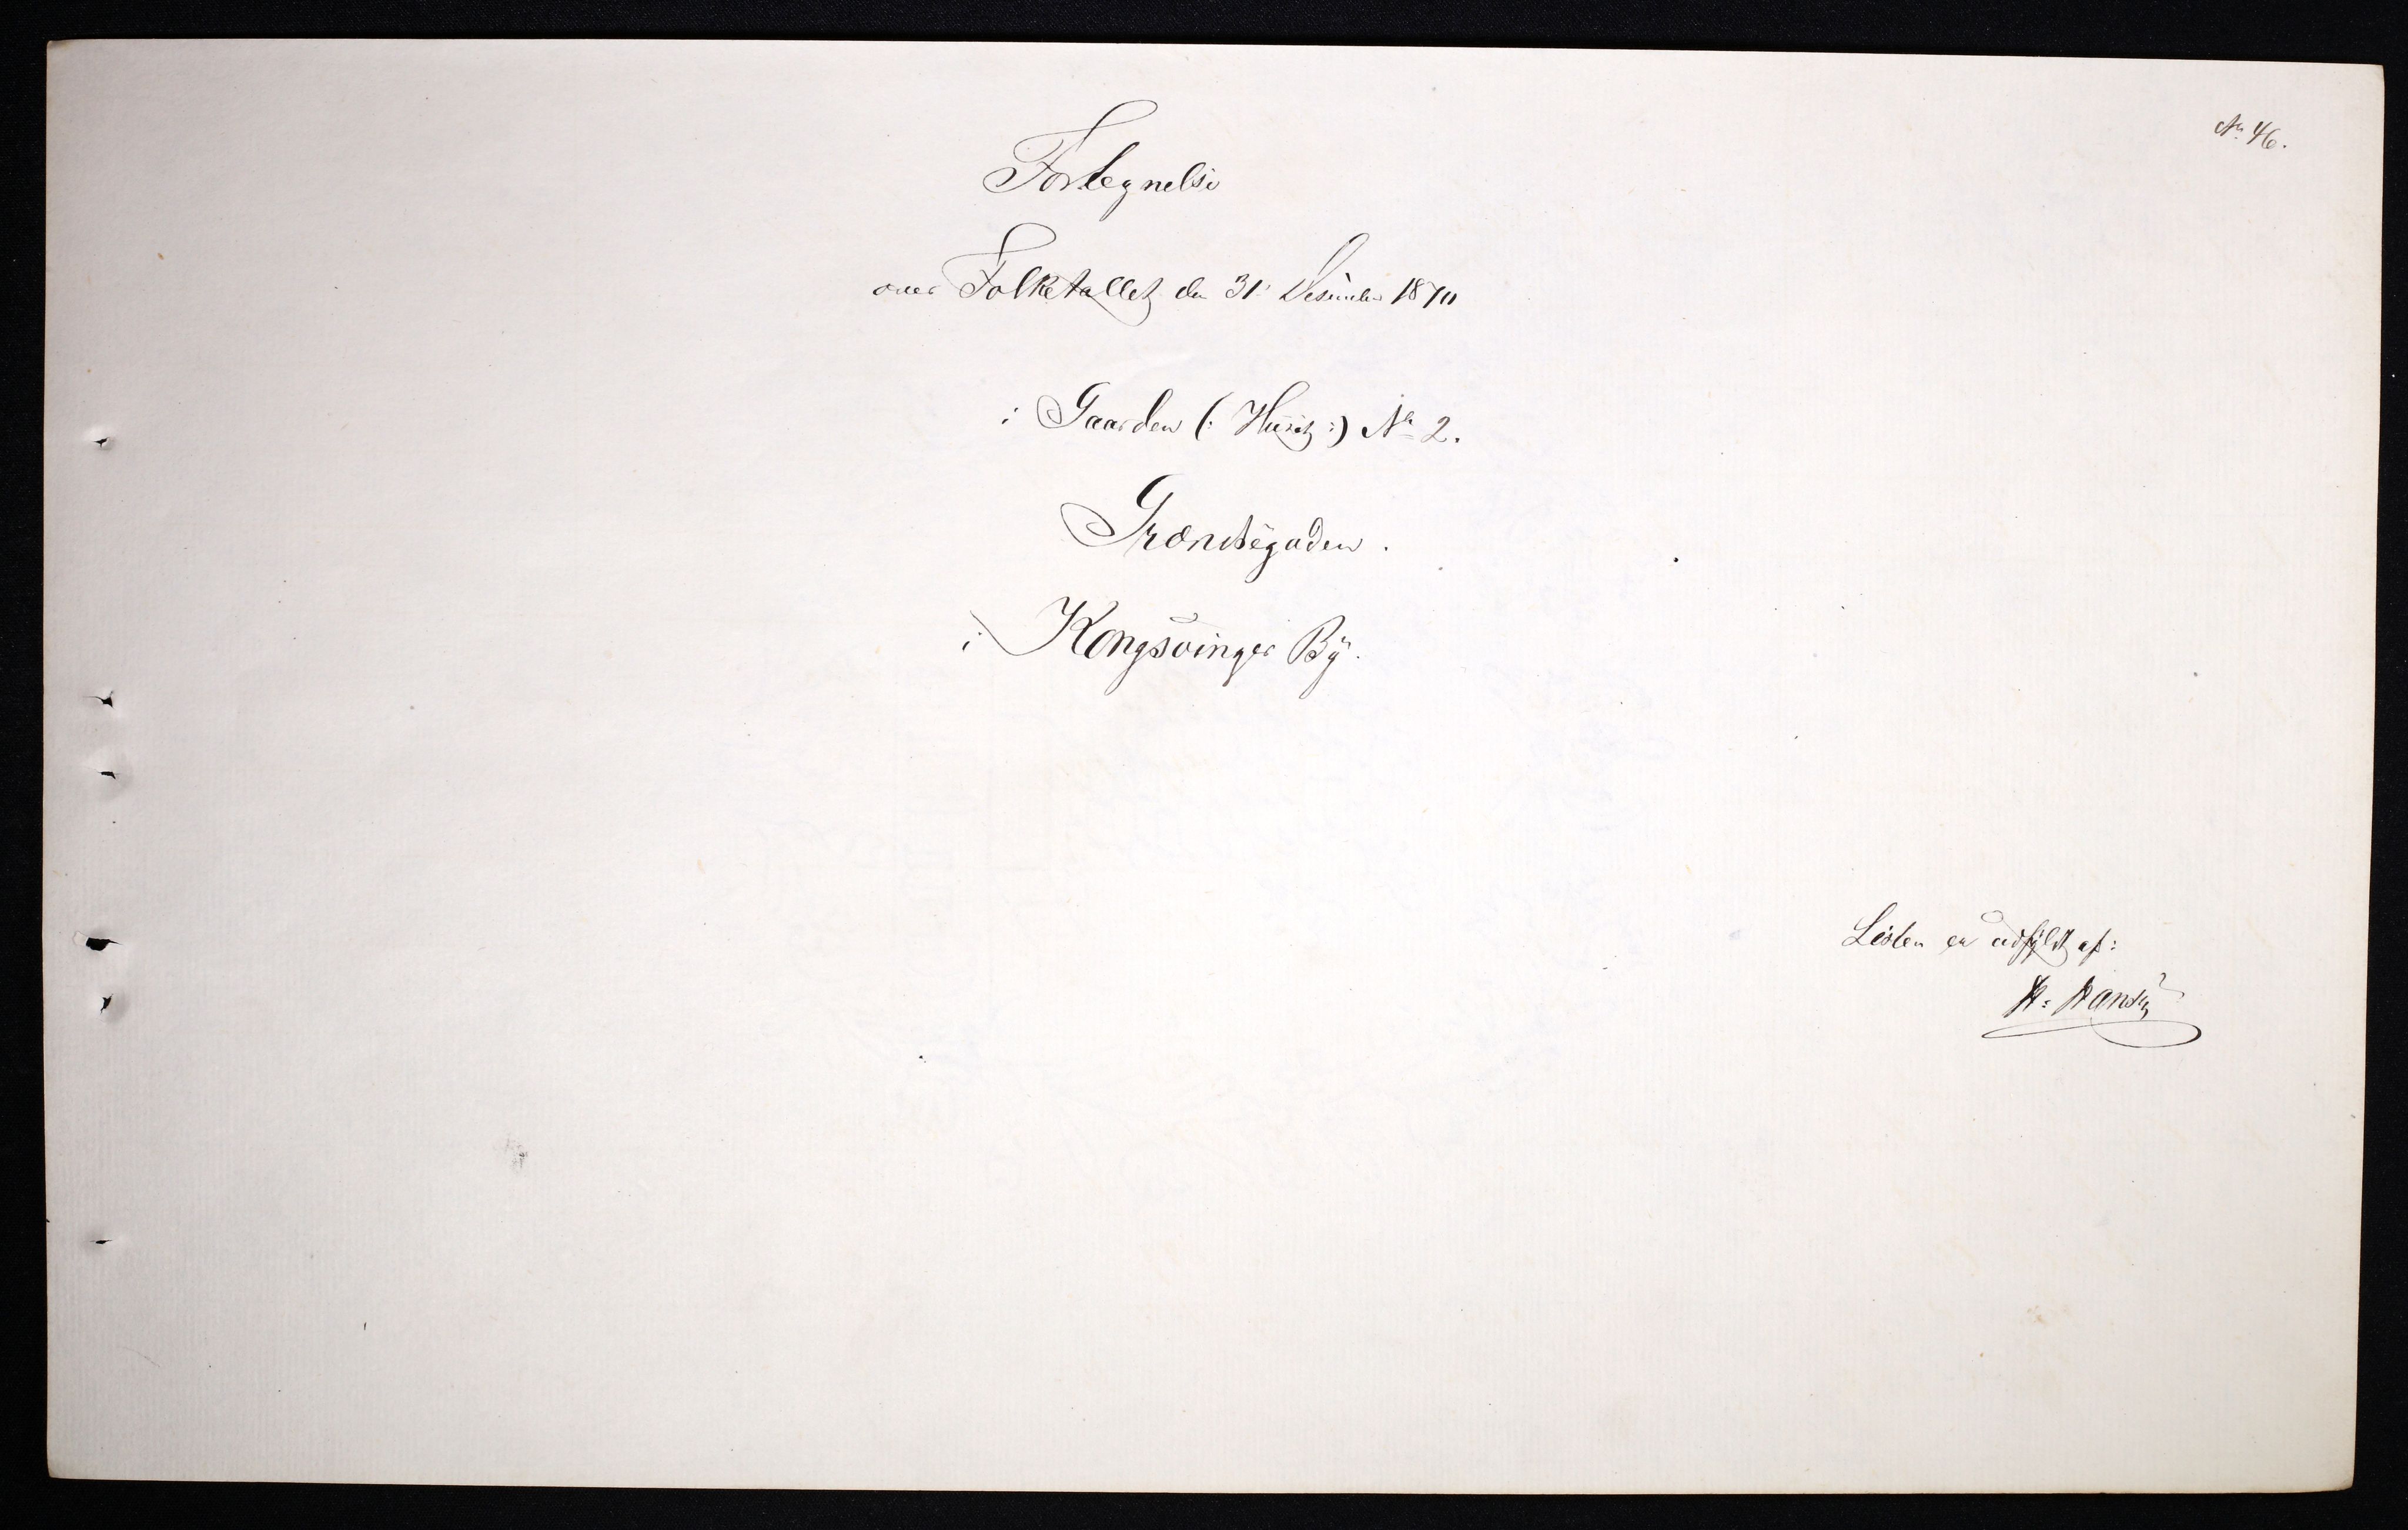 No 46.
Fortegnelse
over Folketallet den 31' Desember 1870
i Gaarden (: Huset :) No 2.
Grændsegaden.
i Kongsvinger By.
Listen er udfyldt af:
H: Hansen